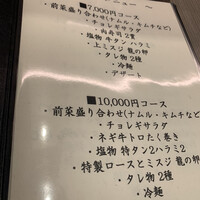 ニュー 〜
■7,000円コース
・前菜盛り合わせ(ナムル・キムチなど)
・チョレギサラダ
・肉寿司2貫
・塩物 牛タン ハラミ
・上ミスジ 龍の卵
・タレ物 2種
・冷麺
・デザート
■10,000円コース
・前菜盛り合わせ(ナムル・キムチなど)
・チョレギサラダ
・ネギ牛トロたく巻き
・塩物 特タン2ハラミ2
・特製ロースとミスジ 龍の卵
・タレ物 2種
・冷麺